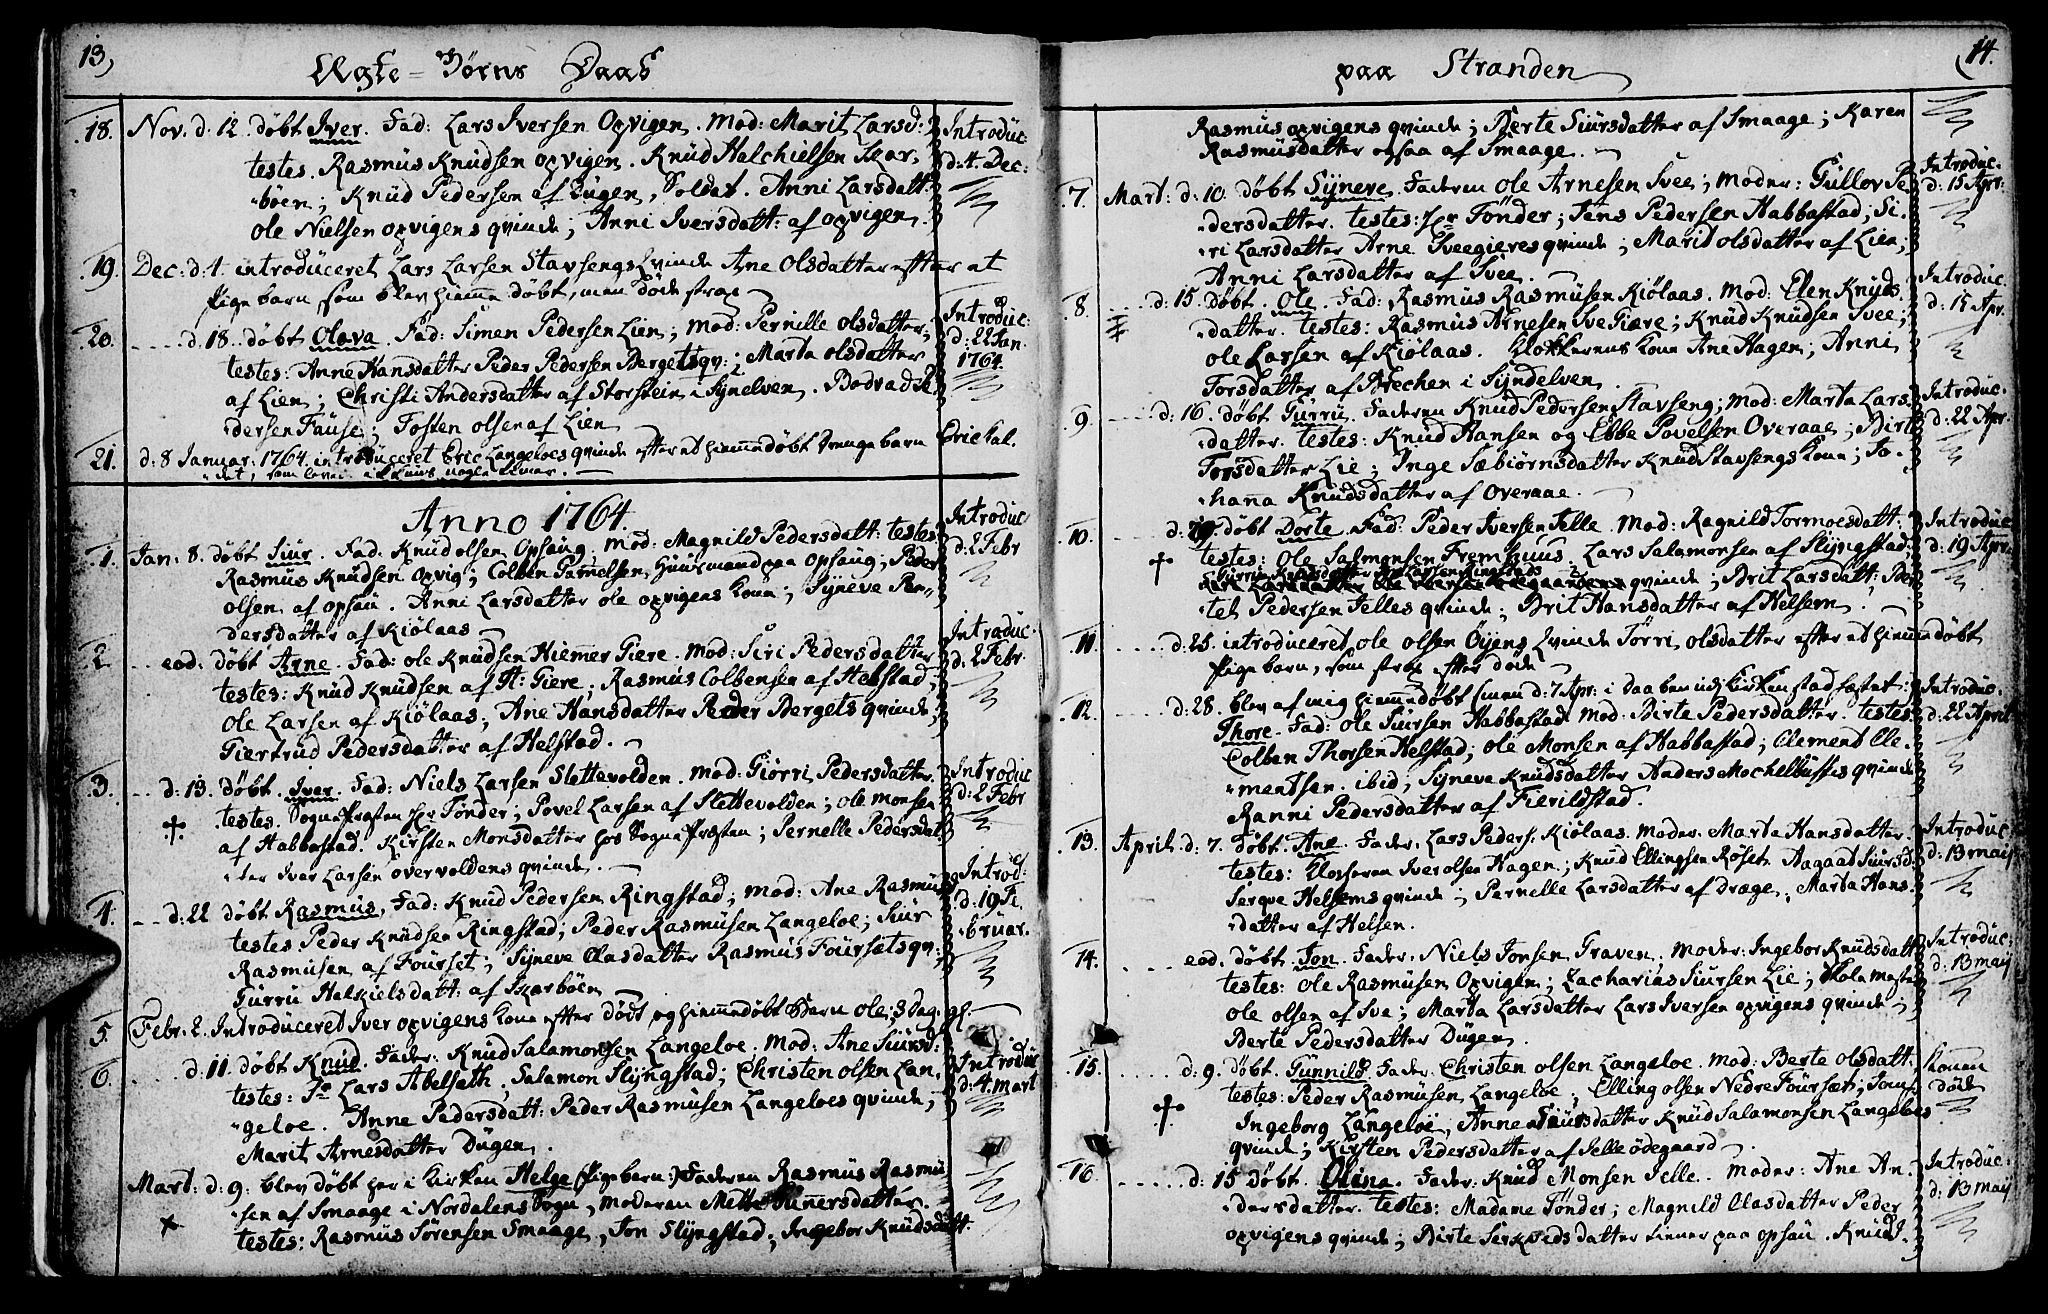 13)
Ægte-Børns Daab
18. Nov. d. 12. døbt Iver. Fad: Lars Iversen Opvigen. Mod: Marit Larsd: Introduc
testes. Rasmus Knudsen opvigen. Knud Halchielsen Skar- d: 4. Dec:
-bøen; Knud Pedersen af Dugen, Soldat. Anni Larsdatt:
ole Nielsen opvigens qvinde; Anni Iversdatt: af opvigen.
19. Dec: d: 1. introduceret Lars Larsen Stavsengs Qvinde Ane Olsdatter efter et
Pige barn som blev hiemme døbt, men døde strax
20. ... d. 18. døbt Olava. Fad: Simen Pedersen Lien; Mod: Pernille olsdatter; Introduc:
testes: Anne Hansdatter Peder Pedersen Bergets qv:; Marta olsdatter d: 22 Jan. 1764.
af Lien; Christi Andersdatter af Storstein i Synelven. Bodvad Pe-
-dersen Fause; Tosten olsen af Lien
21. d: 8 Januar. 1764. introduceret Eric Langeloes qvinde efter et hiemmedøbt Drenge barn Eric kal.
-det, som levede i nogle timer.
Anno 1764.
1. Jan: 8. døbt Siur. Fad: Knud olsen Opsaug. Mod: Magnild Pedersdatt: testes Introduc
Rasmus Knudsen Opvig; Colben Huusmand paa Opsaug; Peder d: 2 Febr
olsen af opsau. Anni Larsdatter ole opvigens kone; Syneve Pe-
dersdatter af Kiölaas
2 .... eod. døbt Arne. Fad: ole Knudsen Hiemer Giere. Mod: Siri Pedersdatter Introduc.
testes: Knud Knudsen af H: Giere; Rasmus Colbensen af Helstad; d: 2 Febr.
Ole Larsen af Kiölaas; Ane Hansdatter Peder Bergets qvinde;
Giertrud Pedersdatter af Helstad.
3. ... d: 13. døbt Iver. Fad: Niels Larsen Slettevolden. Mod: Giørri Pedersdatter. Introduc
testes. Sogne Præsten Hr Tönder; Povel Larsen af Slettevolden; ole monsen d: 2 Febr
af Habbastad. Kirsten Monsdatter hos Sogne Præsten; Pernelle Pedersdat-
-ter Iver Larsen overvoldens qvinde
4. ... d: 22 døbt Rasmus, Fad: Knud Pedersen Ringstad; Mod: Ane Rasmusd: Introd:
testes Peder Knudsen Ringstad; Peder Rasmusen Langeloe; Siur d: 19 Fe-
Rasmusen af Fourset; Syneve Clasdatter Rasmus Foursets qv: -bruar.
Gurru Halkielsdatt: af Skarbøen
5. Febr: 2. Introduceret Iver opvigens kone efter dödt og hiemmedøbt Barn ole; 3 dag: gl.
6. ... d. 11 døbt Knud. Fader: Knud Salamonsen Langeloe. Mod: Ane Siursd: Introduc
testes: Lars Abelseth, Salamon Slyngstad; Christen olsen Lan- d: 4. mart
-geloe. Anne Pedersdatt: Peder Rasmusen Langeloes qvinde;
Marit Arnesdatter Dugen.
Mart: d: 9: blev døbt her i kirken Helge (Pige barn:) Faderen Rasmus Rasmu-
-sen af Smaage i Nordalens Sogn, moderen Mette datter.
testes: Rasmus Sörensen Smaage, Jon Slyngstad; Ingebor Knudsdatt.
paa Stranden
14.
Rasmus opvigens qvinde; Berte Siursdatter af Smaage; Karen
Rasmusdatter ogsaa af Smaage.
7. Mart: d: 10 døbt Syneve. Faderen ole Arnesen Svee; Moder: Gullov Pe- Introduc.
-dersdatter. testes: Hr Tönder; Jens Pedersen Habbastad; Si- d: 15 Apr:
-ri Larsdatter Arne Sveegieres qvinde; Marit olsdatter af Lien;
Anni Larsdatter af Svee.
8. .... d: 15. døbt. Ole. Fad: Rasmus Rasmusen Kiölaas. Mod: Elen Knuds- Introduc.
-datter. testes: Rasmus Arnesen Sve Giere; Knud Knudsen Svee; d: 15 Apr.
ole Larsen af Kiölaas. Klokkerens kone Ane Hagen; Anni
Torsdatter af Brechen i Syndelven.
9. .... d: 16. døbt Gurru. Faderen Knud Pedersen Stavseng; Mod: Marta Lars- Introduc.
-datter. testes: Knud Hansen og Ebbe Povelsen Overaae; Birte d: 22 Apr.
Torsdatter Lie; Inge Sæbiörnsdatter Knud Stavsengs kone; Jo-
-hanna Knudsdatter af Overaae.
10. ... døbt Dorte. Fad: Peder Iversen Selle. Mod: Ragnild Tormoesdatt: Introduc
testes: Ole Salmonsen Fremhuus, Lars Salamonsen af Slyngstad; d: 19 Apr.
qvinde; Brit Larsdatt: Pe-
-ter Pedersen Selles qvinde; Brit Hansdatter af Helsem.
11. .... d: 25. introduceret ole olsen Öyens Qvinde Törri olsdatter efter et hiemmedøbt
Pige barn, som strax efter döde
12. .... d: 28. blev af mig hiemmedøbt (men d: 7 Apr: i Daaben udj kirken stadfæstet) Introduc.
Thore. Fad: Ole Siursen Habbastad Mod: Birte Pedersdatter. testes d: 22 April
Colben Thorsen Helstad; ole Monsen af Habbastad; Clement Cle-
-mentsen. ibid; Syneve Knudsdatter Anders Mochelbustes qvinde
Ranni Pedersdatter af Fierildstad.
13. April. d: 7. døbt. Ane. Fader. Lars Peders: Kiölaas. Moder. Marta Hansdatter. Introduc
testes: Klocheren Iver olsen Hagen; Knud Ellingsen Röset Aagaat Siursd: d: 13 maij
Serque Helsems qvinde; Pernelle Larsdatter af Dræge; Marta Hans-
-datter af Helsen.
14. .... eod. døbt. Jon. Fader: Niels Jonsen Graven. Moder: Ingebor Knudsdatt Introduc:
testes: Ole Rasmusen Opvigen; Zacharias Siursen Lie; Skolemester d: 13 maij
ole olsen af Sve; Marta Larsdatter Lars Iversen opvigens qvinde
Berte Pedersdatter Dugen.
15. .... d: 9. døbt. Gunnild. Fader. Christen olsen Langeloe. Mod: Berte olsdatt. Konen
testes: Peder Rasmusen Langeloe; Elling olsen Nedre Fourset; Jomf. döde
Ingeborg Langeloe, Anne Siursdatter Knud Salamonsen Langeloes
qvinde; Kirsten Pedersdatter af Selle ödegaard
16. .... d: 15 Døbt. Olina. Fader: Knud Monsen Selle. Moder: Ane An- Introduc:
-dersdatter. testes: Madame Tönder; Magnild Clasdatter Peder d: 13 maij
opvigens qvinde; Birte datter tiener paa opsau. Knud J-